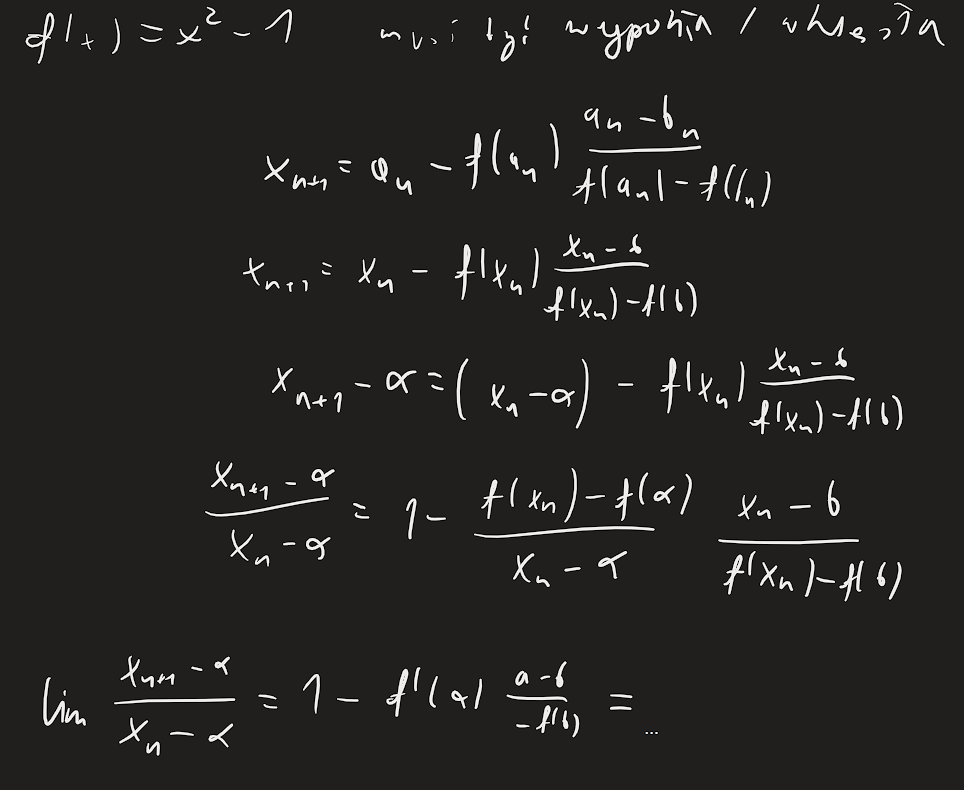 f(x) = x² - 1 musi być wypukła / wklęsła
xₙ₊₁ = aₙ - f(aₙ) (aₙ - bₙ)/(f(aₙ) - f(bₙ))
xₙ₊₁ = xₙ - f(xₙ) (xₙ - b)/(f(xₙ) - f(b))
xₙ₊₁ - α = (xₙ - α) - f(xₙ) (xₙ - b)/(f(xₙ) - f(b))
(xₙ₊₁ - α)/(xₙ - α) = 1 - (f(xₙ) - f(α))/(xₙ - α) (xₙ - b)/(f(xₙ) - f(b))
lim (xₙ₊₁ - α)/(xₙ - α) = 1 - f'(α) (a - b)/(-f(b)) = ...